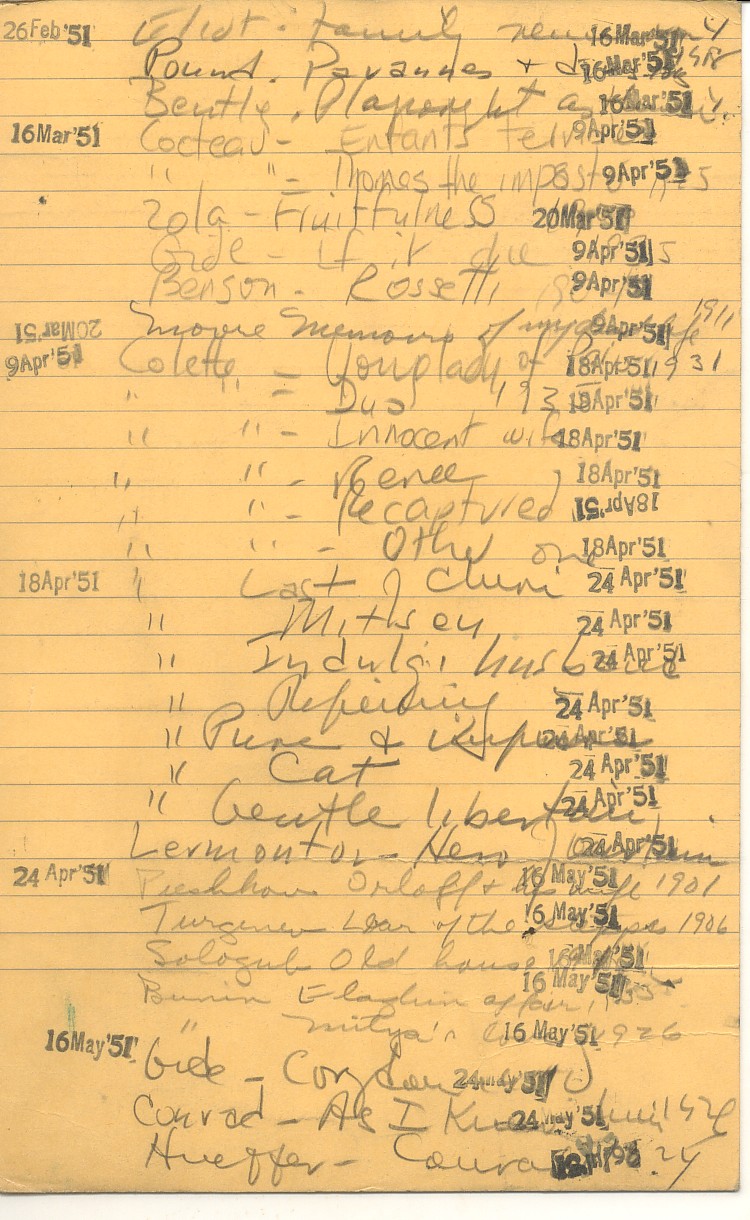 26 Feb '51 Eliot - Family reunion 16 Mar '51
Pound. Pavannes + 16 Mar '51
Bently. Playwright as 16 Mar '51
16 Mar '51 Cocteau - Enfants terribles 9 Apr '51
" " - Thomas the impostor 9 Apr '51
Zola - Fruitfulness 20 Mar '51
Gide - If it die 9 Apr '51
Benson - Rossetti 9 Apr '51
20 Mar '51 Moore Memoirs of my dead life 9 Apr '51 1911
9 Apr '51 Colette - Young lady of 18 Apr '51 1931
" " - Duo 193 18 Apr '51
" " - Innocent wife 18 Apr '51
" " - Renee 18 Apr '51
" " - Recaptured 18 Apr '51
" " - Other one 18 Apr '51
18 Apr '51 " Last of Cheri 24 Apr '51
" Mitsou 24 Apr '51
" Indulg. husband 24 Apr '51
" 24 Apr '51
" Pure & impure 24 Apr '51
" Cat 24 Apr '51
" Gentle libertine 24 Apr '51
Lermontov - Hero 24 Apr '51
24 Apr '51 Orloff & his wife 16 May '51 1901
Turgenev Lear of the steppes 16 May '51 1906
Sologub Old house 16 May '51
Bunin Elaghin affair 16 May '51
" Mitya's 16 May '51 1926
16 May '51 Gide - Corydon 24 May '51
Conrad - As I Knew him 24 May '51
Hueffer - Conrad 24